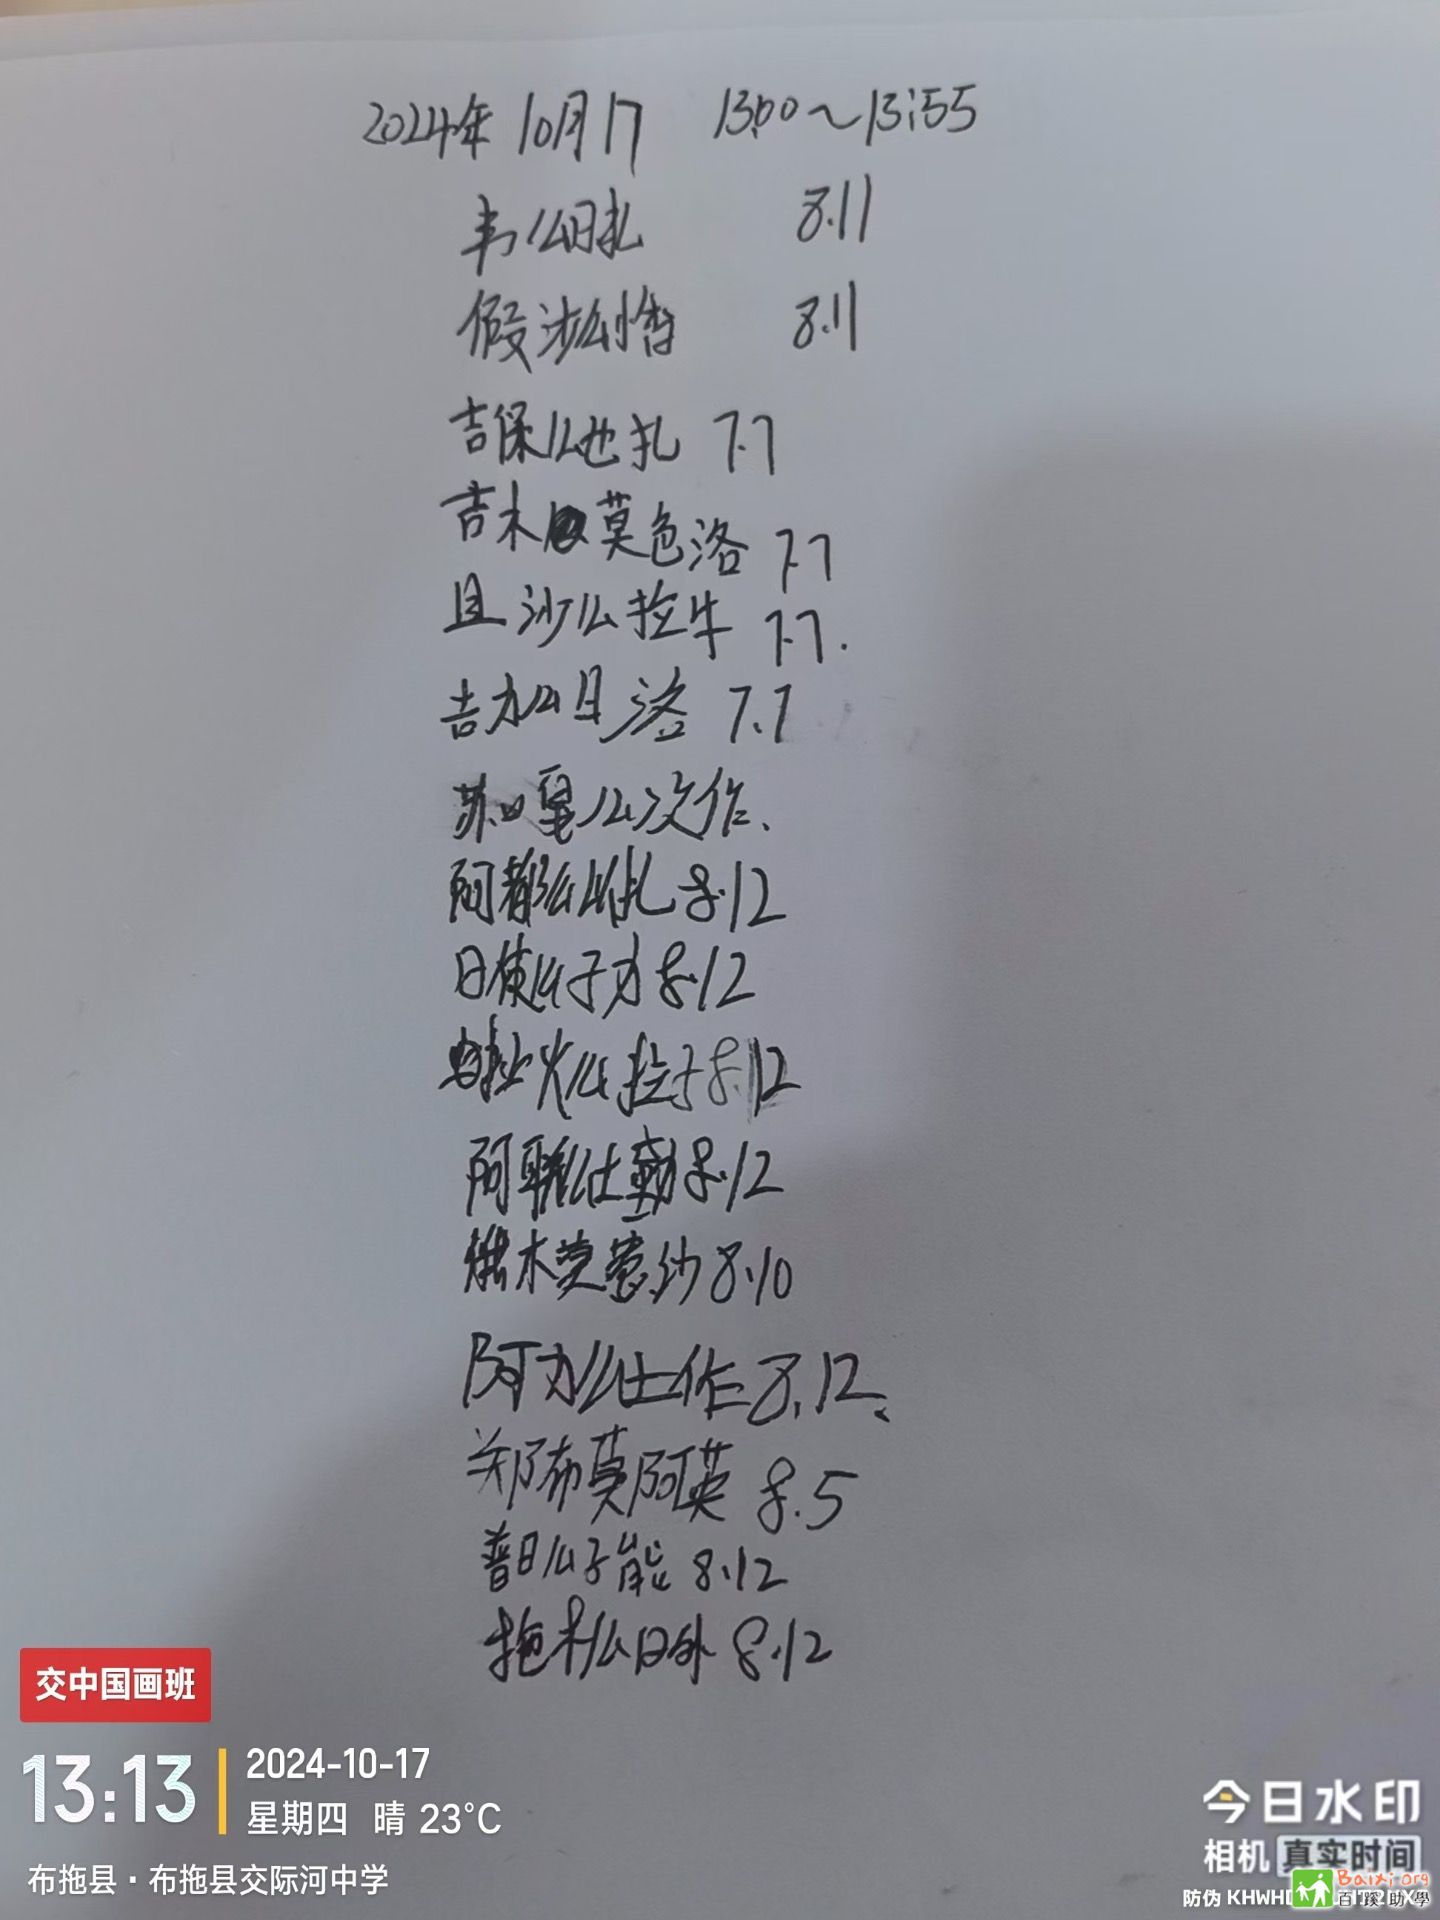 2024年10月17 13:00～13:55
韦么日扎 8.11
假涉么惜 8.11
吉保么也扎 7.7
吉木莫色洛 7.7
且沙么拉牛 7.7.
吉力么日洛 7.7
苏嘎么次作、
阿都么扎 8.12
日使么子力 8.12
火么拉子 8.12
阿么仕勤 8.12
木莫惹沙 8.10
阿力么仕作 8.12、
郑布莫阿英 8.5
普日么子能 8.12
拖木么日外 8.12
交中国画班
13:13
2024-10-17
星期四 晴 23°C
布拖县·布拖县交际河中学
今日水印
相机 真实时间
防伪 KHWH
Baixi.org
百蹊助學